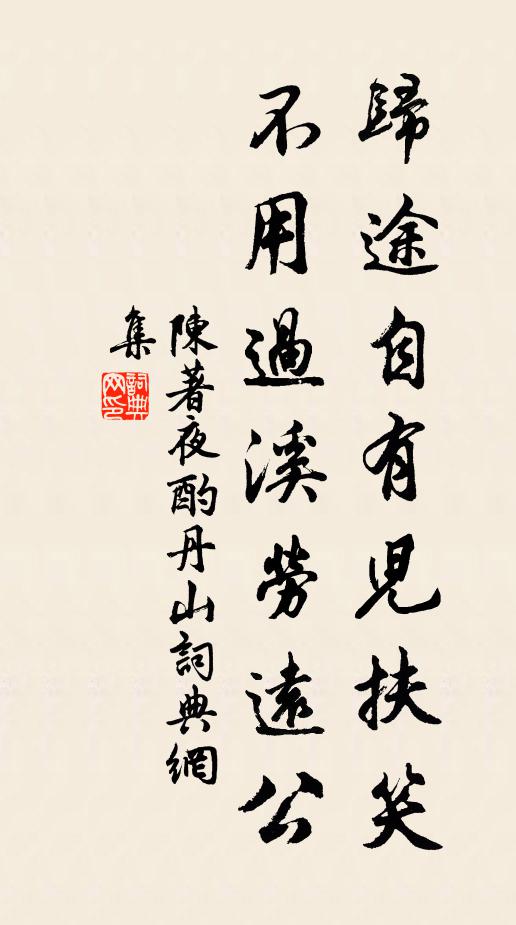 歸途自有児扶笑
不用過溪勞遠公
陳著夜酌丹山詞典網
集
詞典
网印